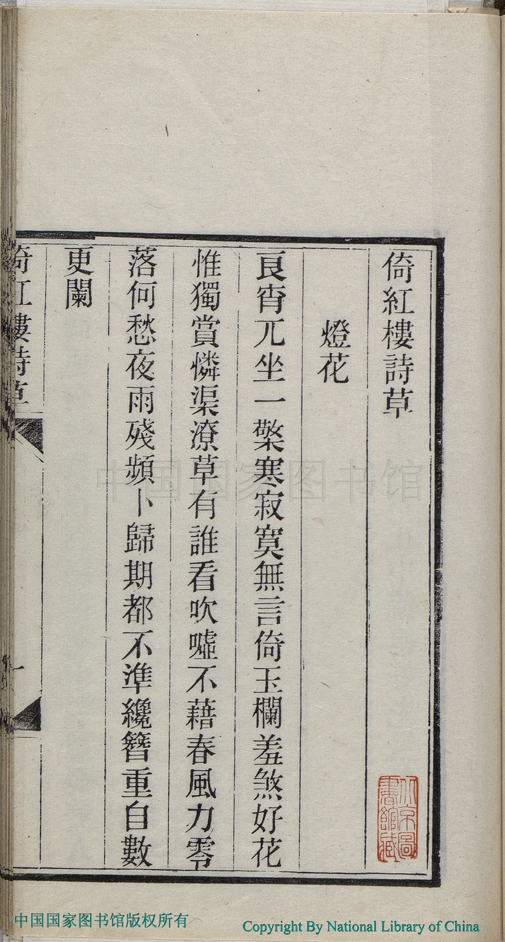 倚紅樓詩草
燈花
良宵兀坐一檠寒寂寞無言倚玉欄羞煞好花
惟獨賞憐渠潦草有誰看吹噓不藉春風力零
落何愁夜雨殘頻卜歸期都不準纔簪重自數
更闌
倚紅樓詩草
一
北京圖書館藏
中国国家图书馆
中国国家图书馆版权所有
Copyright By National Library of China